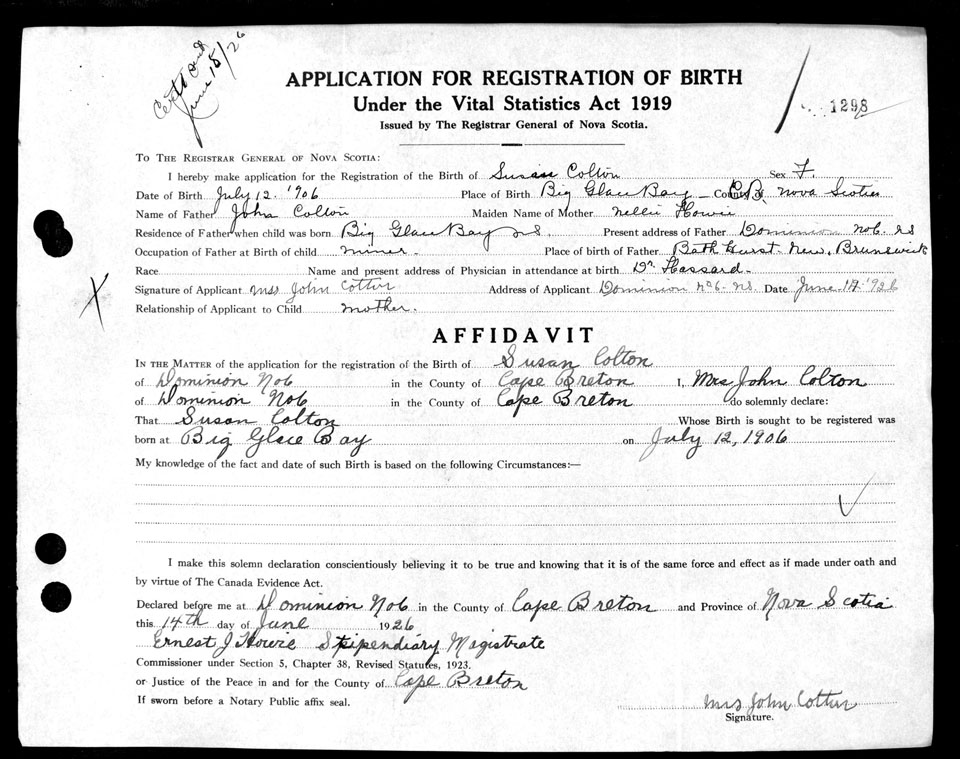 Cert Card
June 15/26
1298
APPLICATION FOR REGISTRATION OF BIRTH
Under the Vital Statistics Act 1919
Issued by The Registrar General of Nova Scotia.
To The Registrar General of Nova Scotia:
I hereby make application for the Registration of the Birth of Susan Colton Sex F.
Date of Birth July 12. '906 Place of Birth Big Glace Bay – County of C.B. Nova Scotia
Name of Father John Colton Maiden Name of Mother Nellie Howie
Residence of Father when child was born Big Glace Bay N.S. Present address of Father Dominion No6. NS
Occupation of Father at Birth of child miner. Place of birth of Father Bathhurst. New. Brunswick
Race Name and present address of Physician in attendance at birth Dr Hassard.
Signature of Applicant Mrs John Cotter Address of Applicant Dominion No6. NS. Date June 14 '926
Relationship of Applicant to Child mother.
AFFIDAVIT
In the Matter of the application for the registration of the Birth of Susan Colton
of Dominion No6 in the County of Cape Breton I, Mrs John Colton
of Dominion No6 in the County of Cape Breton do solemnly declare:
That Susan Colton Whose Birth is sought to be registered was
born at Big Glace Bay on July 12, 1906
My knowledge of the fact and date of such Birth is based on the following Circumstances:—
I make this solemn declaration conscientiously believing it to be true and knowing that it is of the same force and effect as if made under oath and
by virtue of The Canada Evidence Act.
Declared before me at Dominion No6 in the County of Cape Breton and Province of Nova Scotia
this 14th day of June 1926
Ernest J Howie Stipendiary Magistrate
Commissioner under Section 5, Chapter 38, Revised Statutes, 1923.
or Justice of the Peace in and for the County of Cape Breton
If sworn before a Notary Public affix seal.
Mrs John Cotter
Signature.